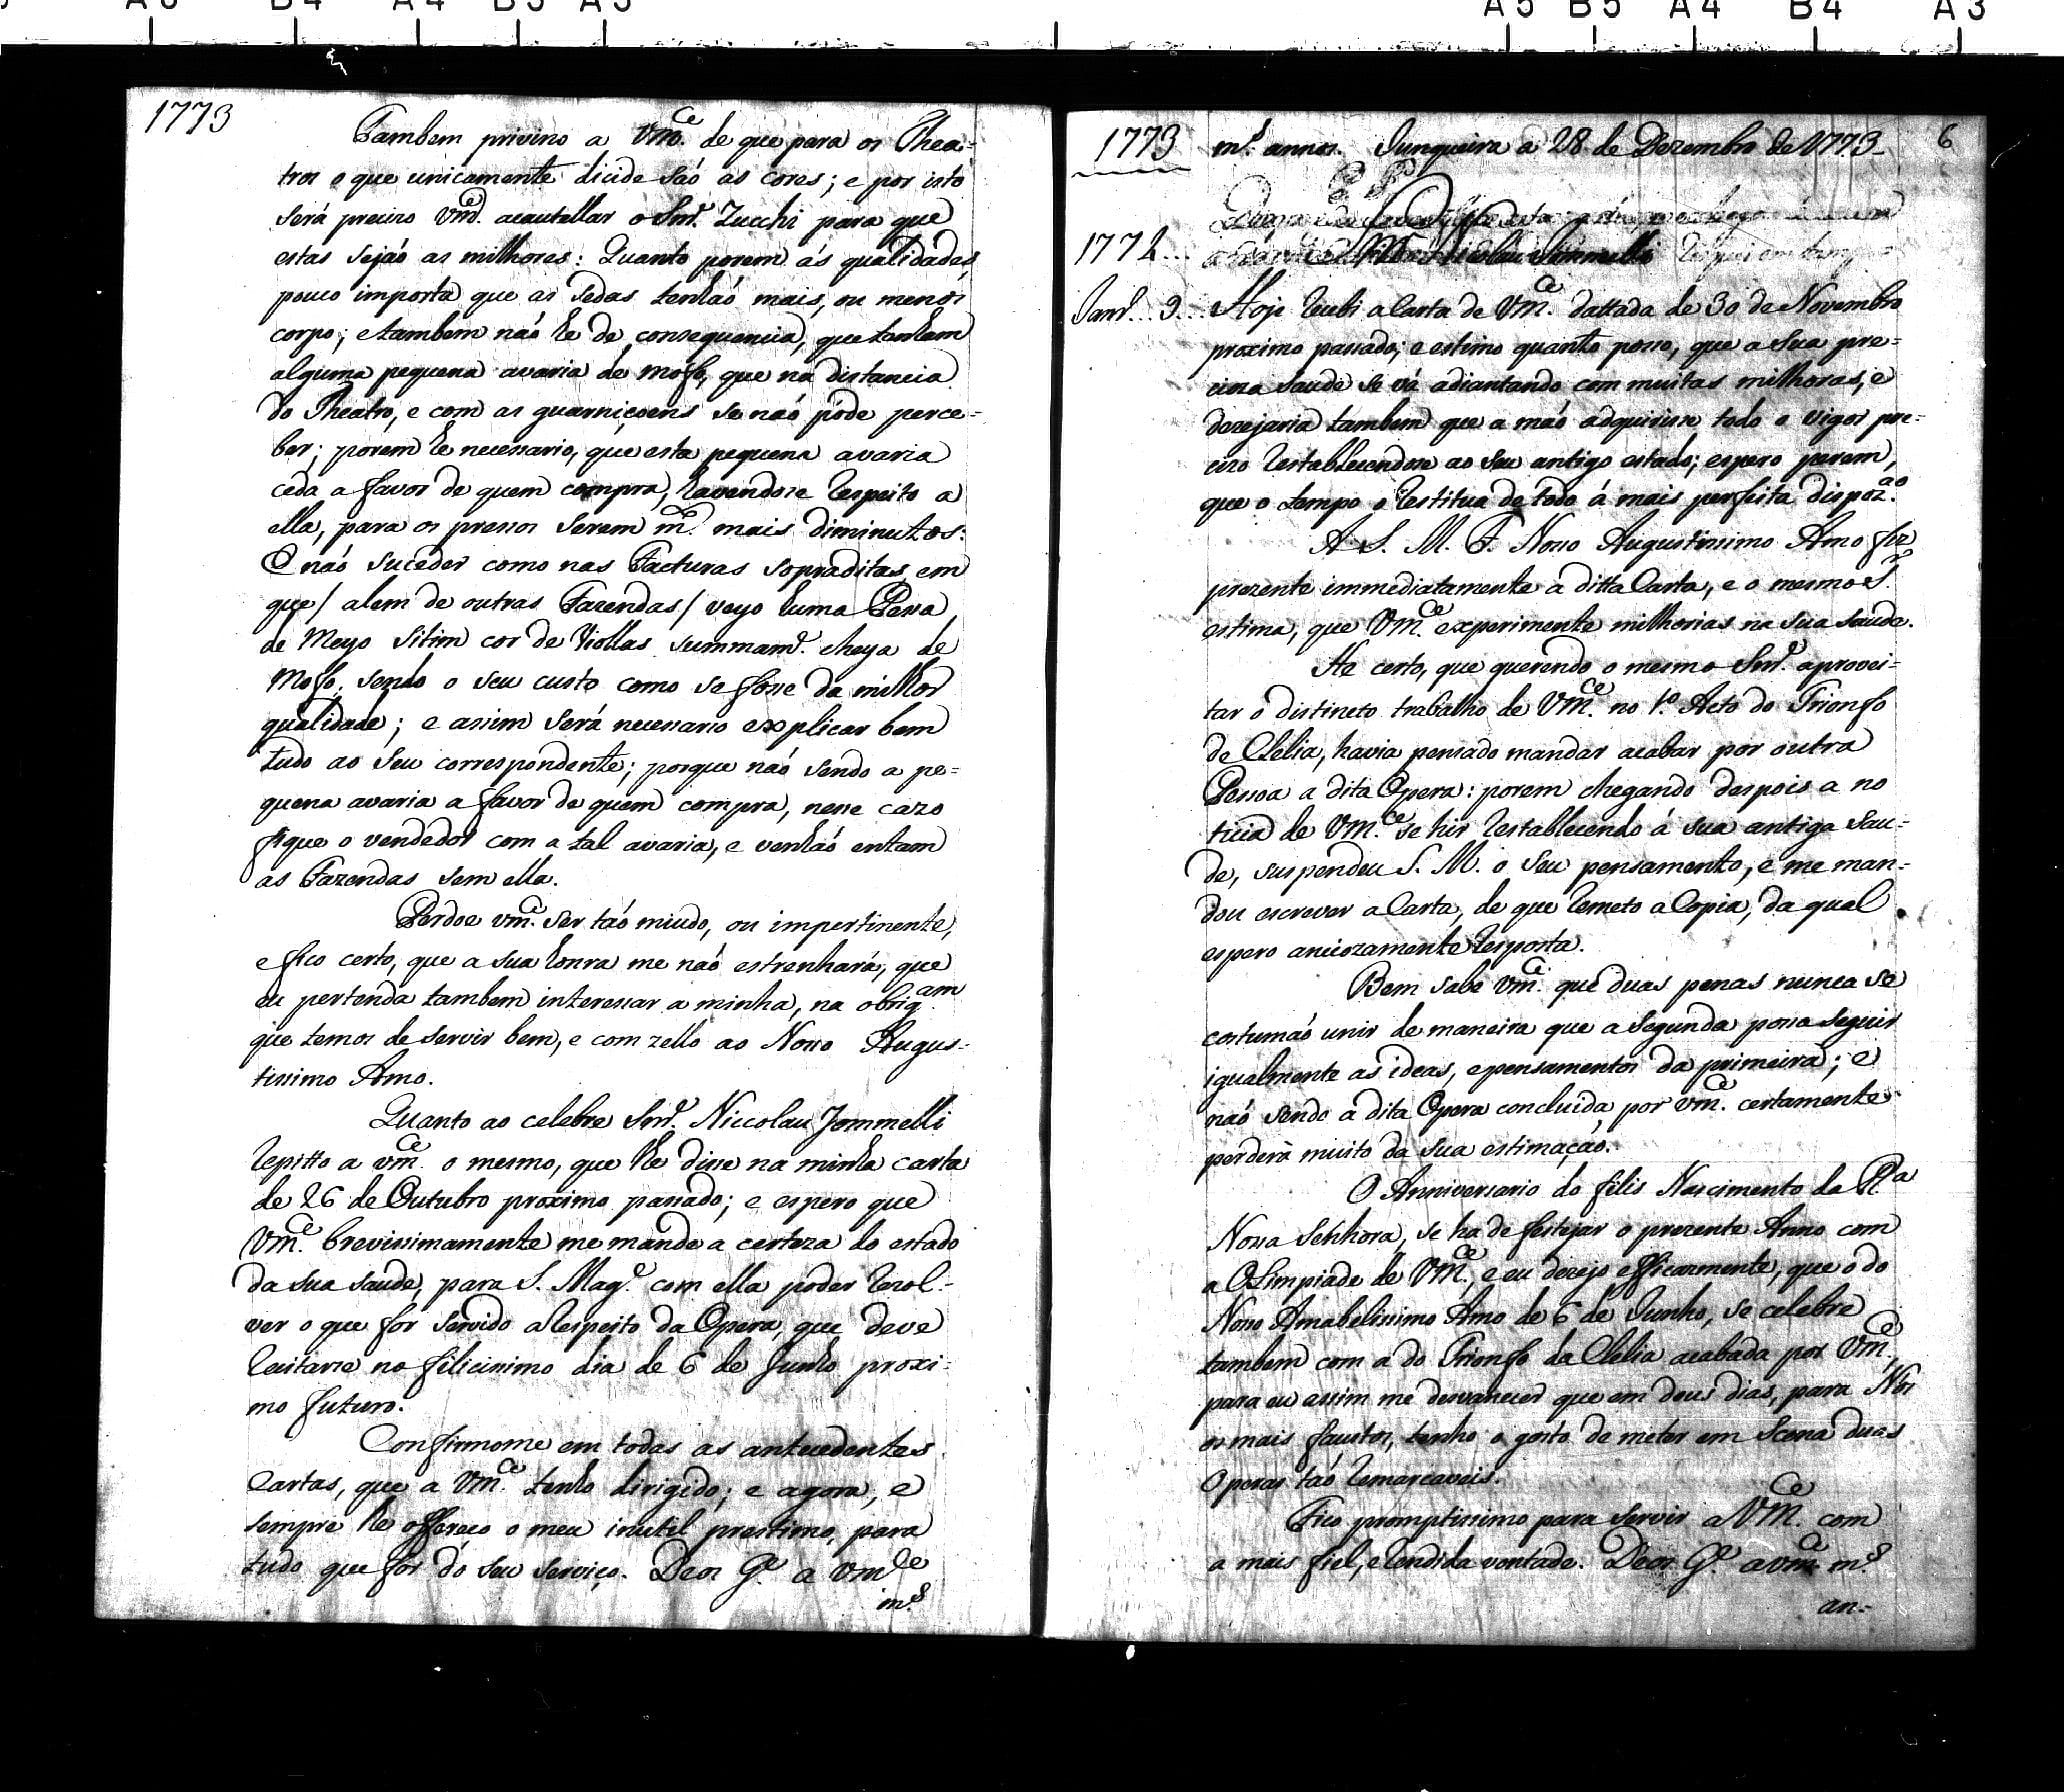 A5 B4 A4 B5 A5
A5 B5 A4 B4 A3
1773
Tambem privino a Vm.ce de que para os Thea-
tros o que unicamente dicide são as cores; e por isto
será precizo Vm.ce acautellar o Snr. Zucchi para que
estas sejaõ as milhores: Quanto porem ás qualidades,
pouco importa que as sedas tenhaõ mais, ou menos
corpo; e tambem naõ he de consequencia, que tenham
alguma pequena avaria de mofo, que na distancia
do Theatro, e com as guarniçoens se naõ póde perce-
ber; porem he necessario, que esta pequena avaria
ceda a favor de quem compra, havendose respeito a
ella, para os pressos serem m.to mais diminutos:
E naõ suceder como nas Facturas sopraditas, em
que / alem de outras Fazendas / veyo huma Pessa
de Meyo Sitim cor de Viollas summam.e cheya de
Mofo, sendo o seu custo como se fosse da milhor
qualidade; e assim será necessario explicar bem
tudo ao seu correspondente; porque naõ sendo a pe-
quena avaria a favor de quem compra, nesse cazo
fique o vendedor com a tal avaria, e venhaõ entam
as Fazendas sem ella.
Perdoe vm.ce ser taõ miudo, ou impertinente,
e fico certo, que a sua honra me naõ estrenhará, que
eu pertenda tambem interessar a minha, na obrig.am
que temos de servir bem, e com zello ao Nosso Augus-
tissimo Amo.
Quanto ao celebre Snr. Niccolau Jommelli
repitto a vm.ce o mesmo, que lhe disse na minha carta
de 26 de Outubro proximo passado; e espero que
Vm.ce brevissimamente me mande a certeza do estado
da sua saude, para S. Mag.e com ella poder rezol-
ver o que for servido a respeito da Opera, que deve
recitarse no felicissimo dia de 6 de Junho proxi-
mo futuro.
Confirmome em todas as antecedentes
Cartas, que a Vm.ce tenho dirigido; e agora, e
sempre lhe offereço o meu inutil prestimo, para
tudo que for do seu serviço. Deos G.e a vm.ce
m.s
1773 m.s annos. Junqueira a 28 de Dezembro de 1773 6
1772
Janr.o 9. Hoje recebi a Carta de Vm.ce dattada de 30 de Novembro
proximo passado; e estimo quanto posso, que a sua pre-
cioza saude se vá adiantando com muitas milhoras, e
dezejaria tambem que a maõ adquirisse todo o vigor pre-
cizo restablecendose ao seu antigo estado; espero porem,
que o tempo o restitua de todo á mais perfeita dispoz.ao
A S. M. F. Nosso Augustissimo Amo fiz
prezente immediatamente a ditta Carta, e o mesmo S.r
estima, que Vm.ce experimente milhorias na sua saude.
He certo, que querendo o mesmo Snr. aprovei-
tar o distincto trabalho de Vm.ce no 1.o Acto do Trionfo
de Clelia, havia pensado mandar acabar por outra
Pessoa a dita Opera: porem chegando despois a no
ticia de Vm.ce se hir restablecendo á sua antiga sau-
de, suspendeu S. M. o seu pensamento, e me man-
dou escrever a Carta, de que remeto a Copia, da qual
espero anciozamente resposta.
Bem sabe vm.ce que duas penas nunca se
costumaõ unir de maneira que a segunda possa seguir
igualmente as ideas, e pensamentos da primeira; e
naõ sendo a dita Opera concluida por vm.ce certamente
perderà muito da sua estimaçaõ.
O Anniversario do felis Nascimento da R.a
Nossa Senhora, se ha de festejar o prezente Anno com
a Olimpiade de Vm.ce, e eu dezejo efficazmente, que o do
Nosso Amabelissimo Amo de 6 de Junho, se celebre
tambem com a do Trionfo da Clelia acabada por Vm.ce,
para eu assim me desvanecer que em dous dias, para Nós
os mais faustos, tenho o gosto de meter em Scena duas
Operas taõ remarcaveis.
Fico promptissimo para servir a VM.ce com
a mais fiel, e rendida vontade. Deos G.e a vm.ce m.s
an-